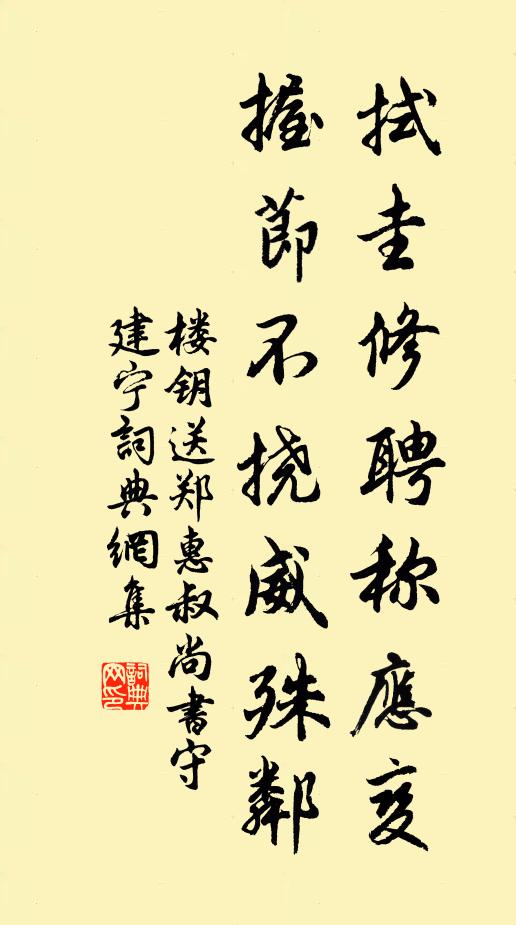 拭圭修聘称應变
握節不挠威殊鄰
楼钥送郑惠叔尚書守
建宁詞典網集
詞典网印